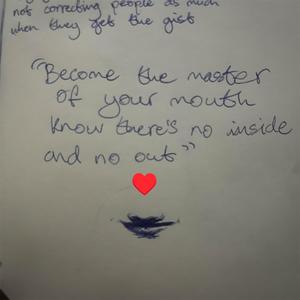 not correcting people as much
when they get the gist
"Become the master
of your mouth
know there's no inside
and no out"